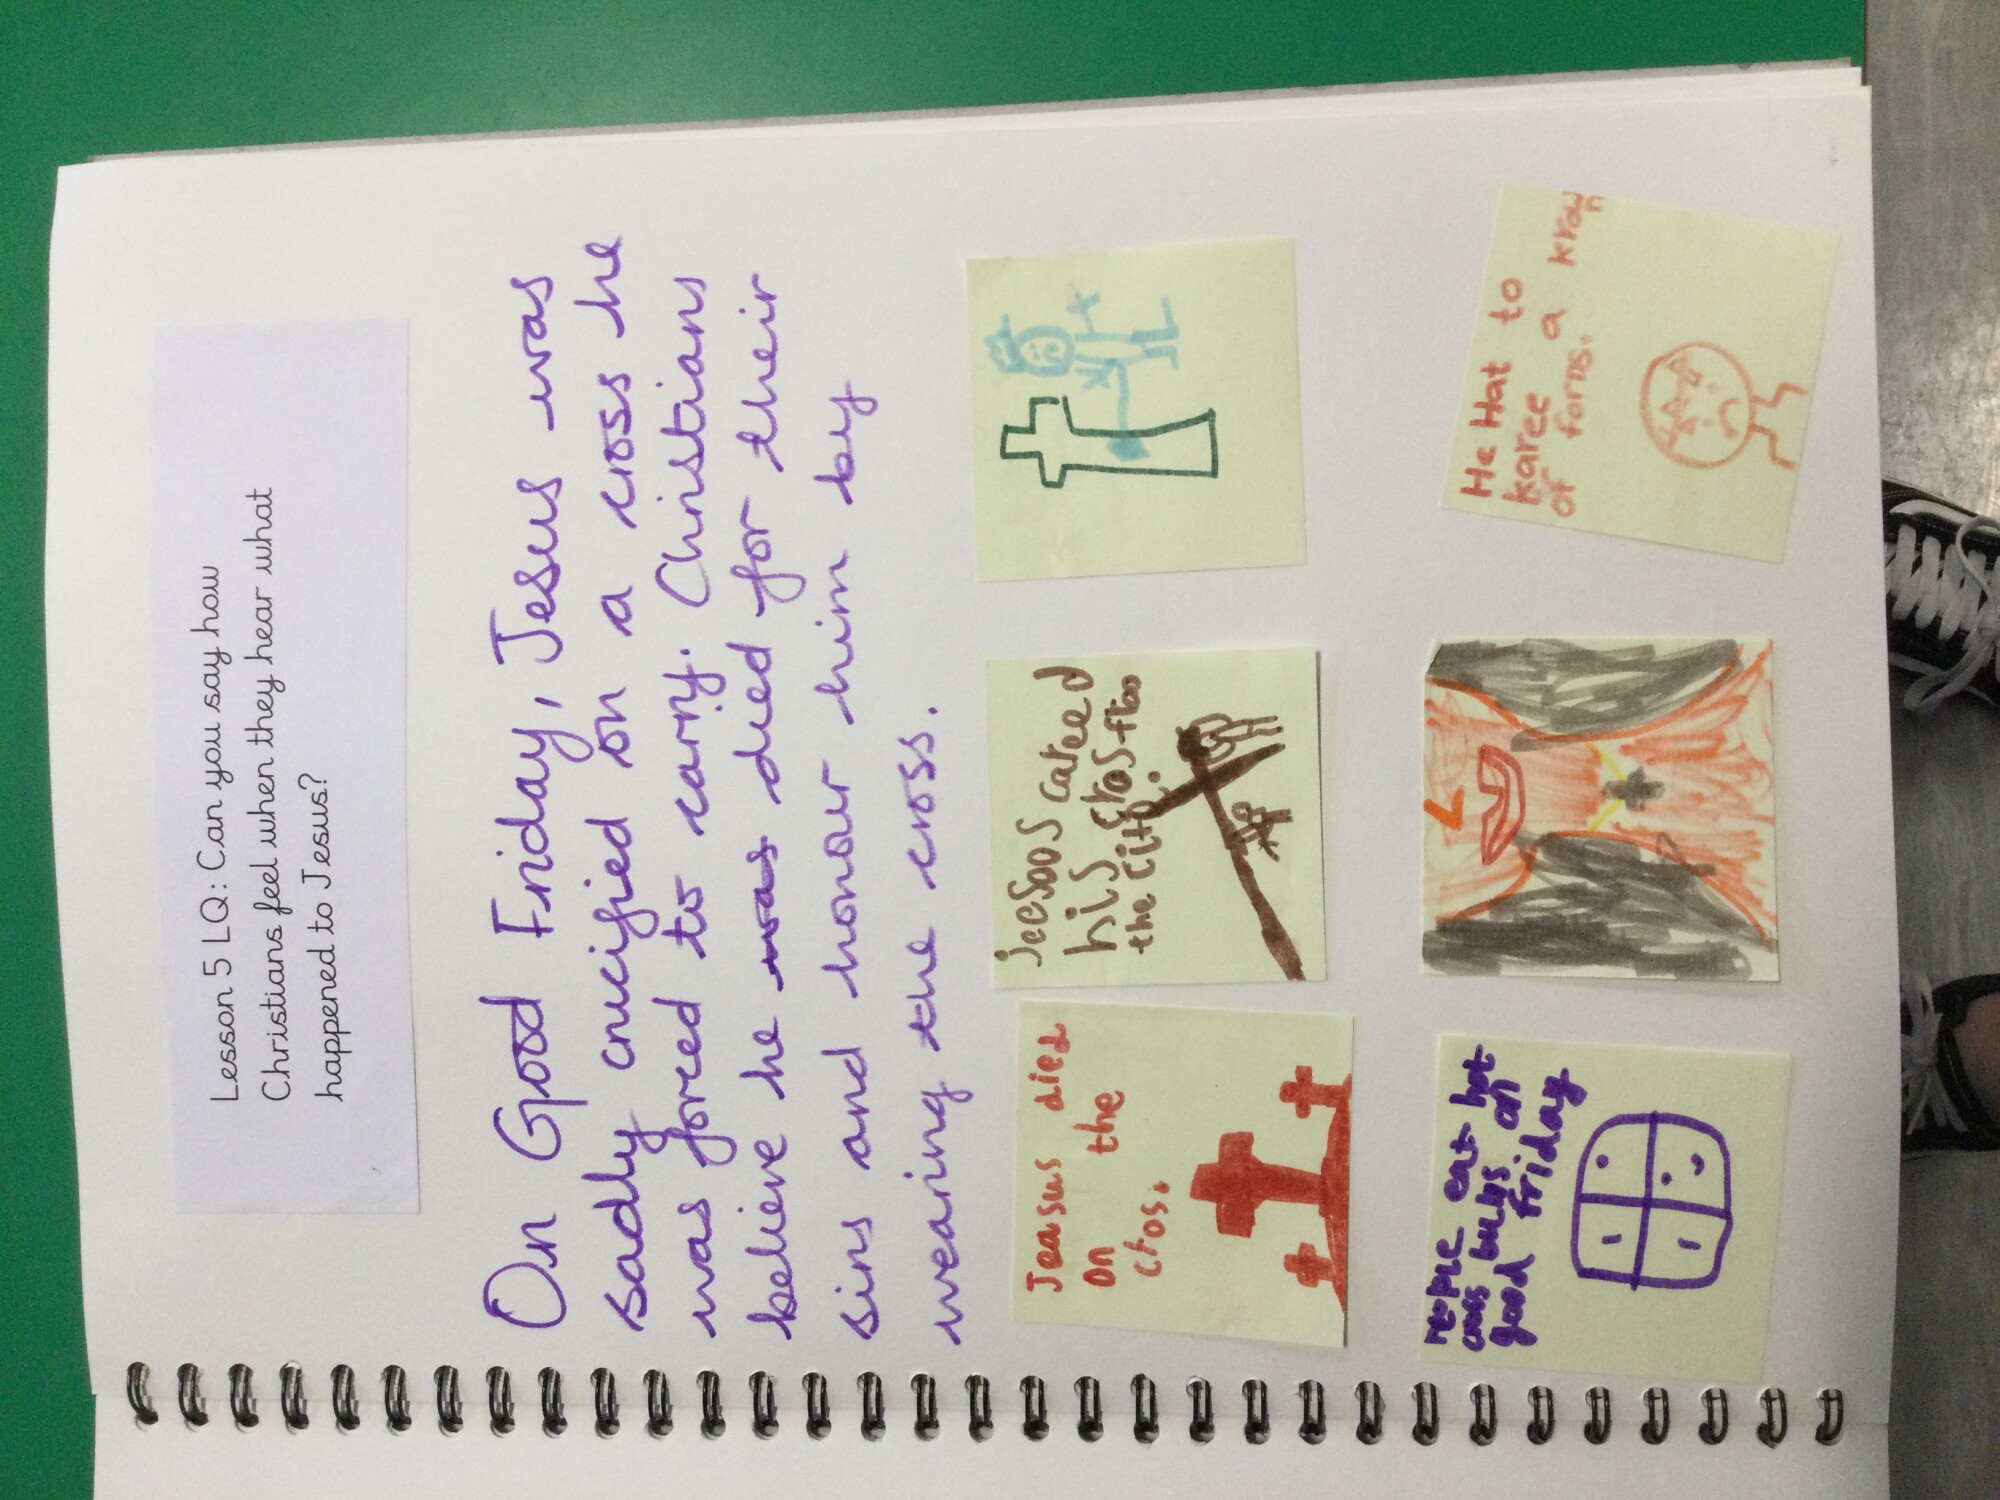 Lesson 5 LQ: Can you say how
Christians feel when they hear what
happened to Jesus?
On Good Friday, Jesus was
sadly crucified on a cross he
was forced to carry. Christians
believe he was died for their
sins and honour him by
wearing the cross.
Jeasus died
on the
cros.
jeesoos careed
his cros froo
the citp.
people eat hot
cross buns on
good friday
He Hat to
karee a krawn
of forns.